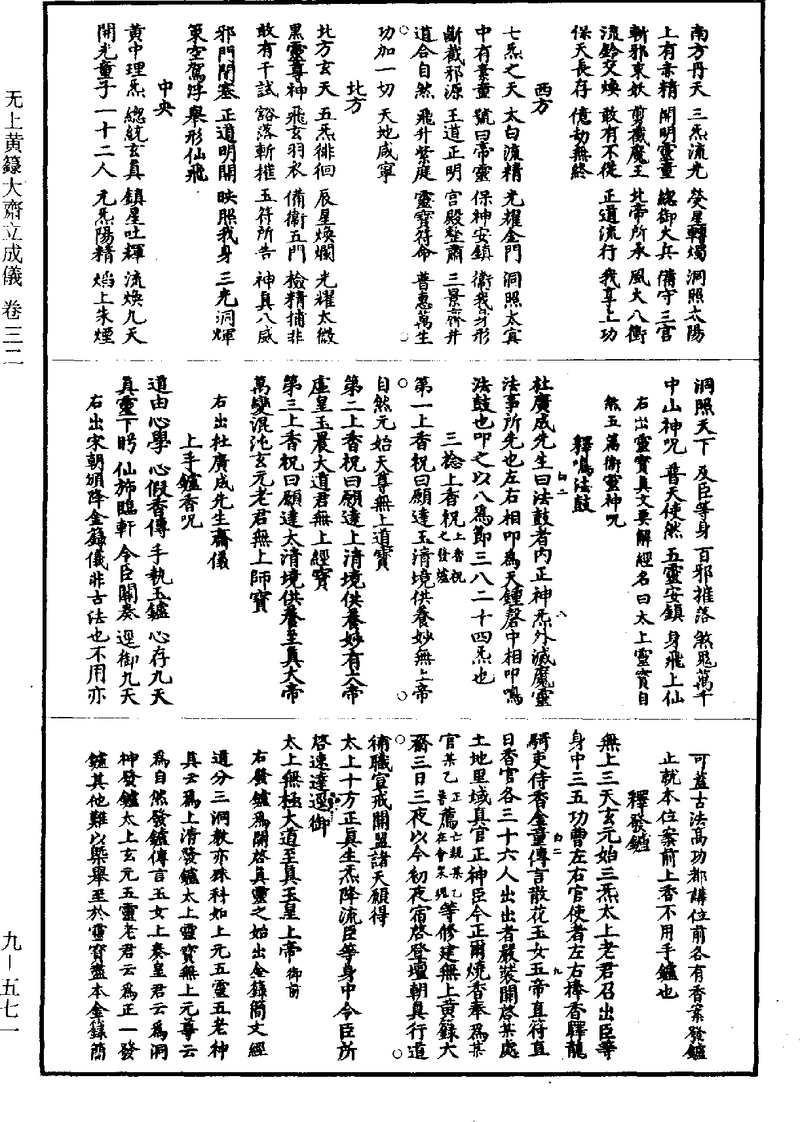 无上黄籙大齋立成儀 卷三二
九－五七一
南方丹天 三炁流光 熒星轉燭 洞照太陽
上有赤精 開明靈童 總御火兵 備守三官
斬邪束妖 剪截魔王 北帝所承 風火八衝
流鈴交煥 敢有不從 正道流行 我享上功
保天長存 億劫無終
西方
七炁之天 太白流精 光耀金門 洞照太冥
中有素童 號曰帝靈 保神安鎮 衛我身形
斷截邪源 王道正明 宮殿整肅 三景齊并
道合自然 飛升紫庭 靈寶符命 普惠萬生
功加一切 天地咸寧
北方
北方玄天 五炁徘徊 辰星煥爛 光耀太微
黑靈尊神 飛玄羽衣 備衛五門 檢精捕非
敢有干試 豁落斬摧 玉符所告 神真八威
邪門閉塞 正道明開 映照我身 三光洞輝
策空駕浮 舉形仙飛
中央
黃中理炁 總統玄真 鎮星吐輝 流煥九天
開光童子 一十二人 元炁陽精 焰上朱煙
洞照天下 及臣等身 百邪摧落 煞鬼萬千
中山神呪 普天使然 五靈安鎮 身飛上仙
右出靈寶真文要解經名曰太上靈寶自
然五篇衛靈神呪
釋鳴法鼓
杜廣成先生曰法鼓者内正神炁外滅魔靈
法事所先也左右相叩為天鍾磬中相叩鳴
法鼓也叩之以八為節三八二十四炁也
三捻上香祝上香祝之發爐
第一上香祝曰願達玉清境供養妙無上帝
自然元始天尊無上道寶
第二上香祝曰願達上清境供養妙有大帝
虛皇玉晨大道君無上經寶
第三上香祝曰願達太清境供養至真大帝
萬變混沌玄元老君無上師寶
右出杜廣成先生齋儀
上手鑪香呪
道由心學 心假香傳 手執玉鑪 心存九天
真靈下眄 仙斾臨軒 令臣關奏 逕御九天
右出宋朝頒降金籙儀非古法也不用亦
可蓋古法高功都講位前各有香案發鑪
止就本位案前上香不用手鑪也
釋發鑪
無上三天玄元始三炁太上老君召出臣等
身中三五功曹左右官使者左右捧香驛龍
騎吏侍香金童傳言散花玉女五帝直符直
日香官各三十六人出出者嚴裝關啓某處
土地里域真官正神臣今正爾燒香奉為某
官某乙正薦亡親某乙普在會眾魂等修建無上黃籙大
齋三日三夜以今初夜宿啓登壇朝真行道
補職宣戒關盟諸天願得
太上十方正真生炁降流臣等身中令臣所
啓速達逕御
太上無極大道至真玉皇上帝御前
右發鑪為關啓真靈之始出金籙簡文經
道分三洞教亦殊科如上元五靈五老神
真云為上清發鑪太上靈寶無上元尊云
為自然發鑪傳言玉女上奏皇君云為洞
神發鑪太上玄元五靈老君云為正一發
鑪其他難以槩舉至於靈寶盡本金籙簡